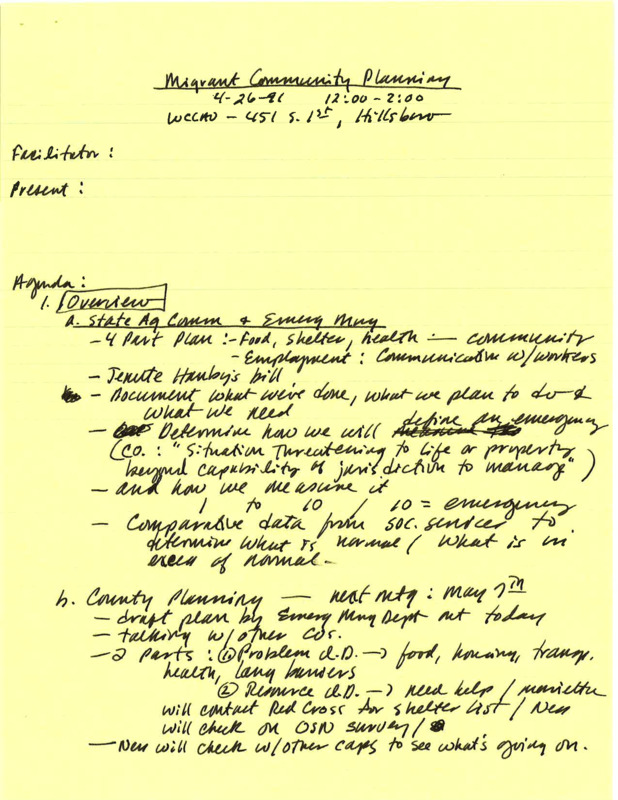 Migrant Community Planning
4-26-91 12:00-2:00
WCCAO - 451 S. 1st, Hillsboro
Facilitator:
Present:
Agenda:
1. Overview
a. State Ag Comm & Emerg Mng
- 4 Part Plan: - Food, shelter, health - community
- Employment: Communication w/workers
- Jenute Hamby's bill
- Document what we've done, what we plan to do &
what we need
- Determine how we will define an emergency
(CO.: "Situation Threatening to life or property
beyond capability of jurisdiction to manage")
- and how we measure it
1 to 10 / 10 = emergency
- Comparative data from soc. services to
determine what is normal / what is in
excess of normal -
b. County Planning - next mtg: May 7th
- draft plan by Emerg Mng Dept out today
- talking w/other COs.
- 2 parts: ① Problem I.D. → food, housing, transp.
health, lang barriers
② Resource I.D. → need help / Marietta
will contact Red Cross for shelter list / Ness
will check on OSN survey /
- Ness will check w/other caps to see what's going on.